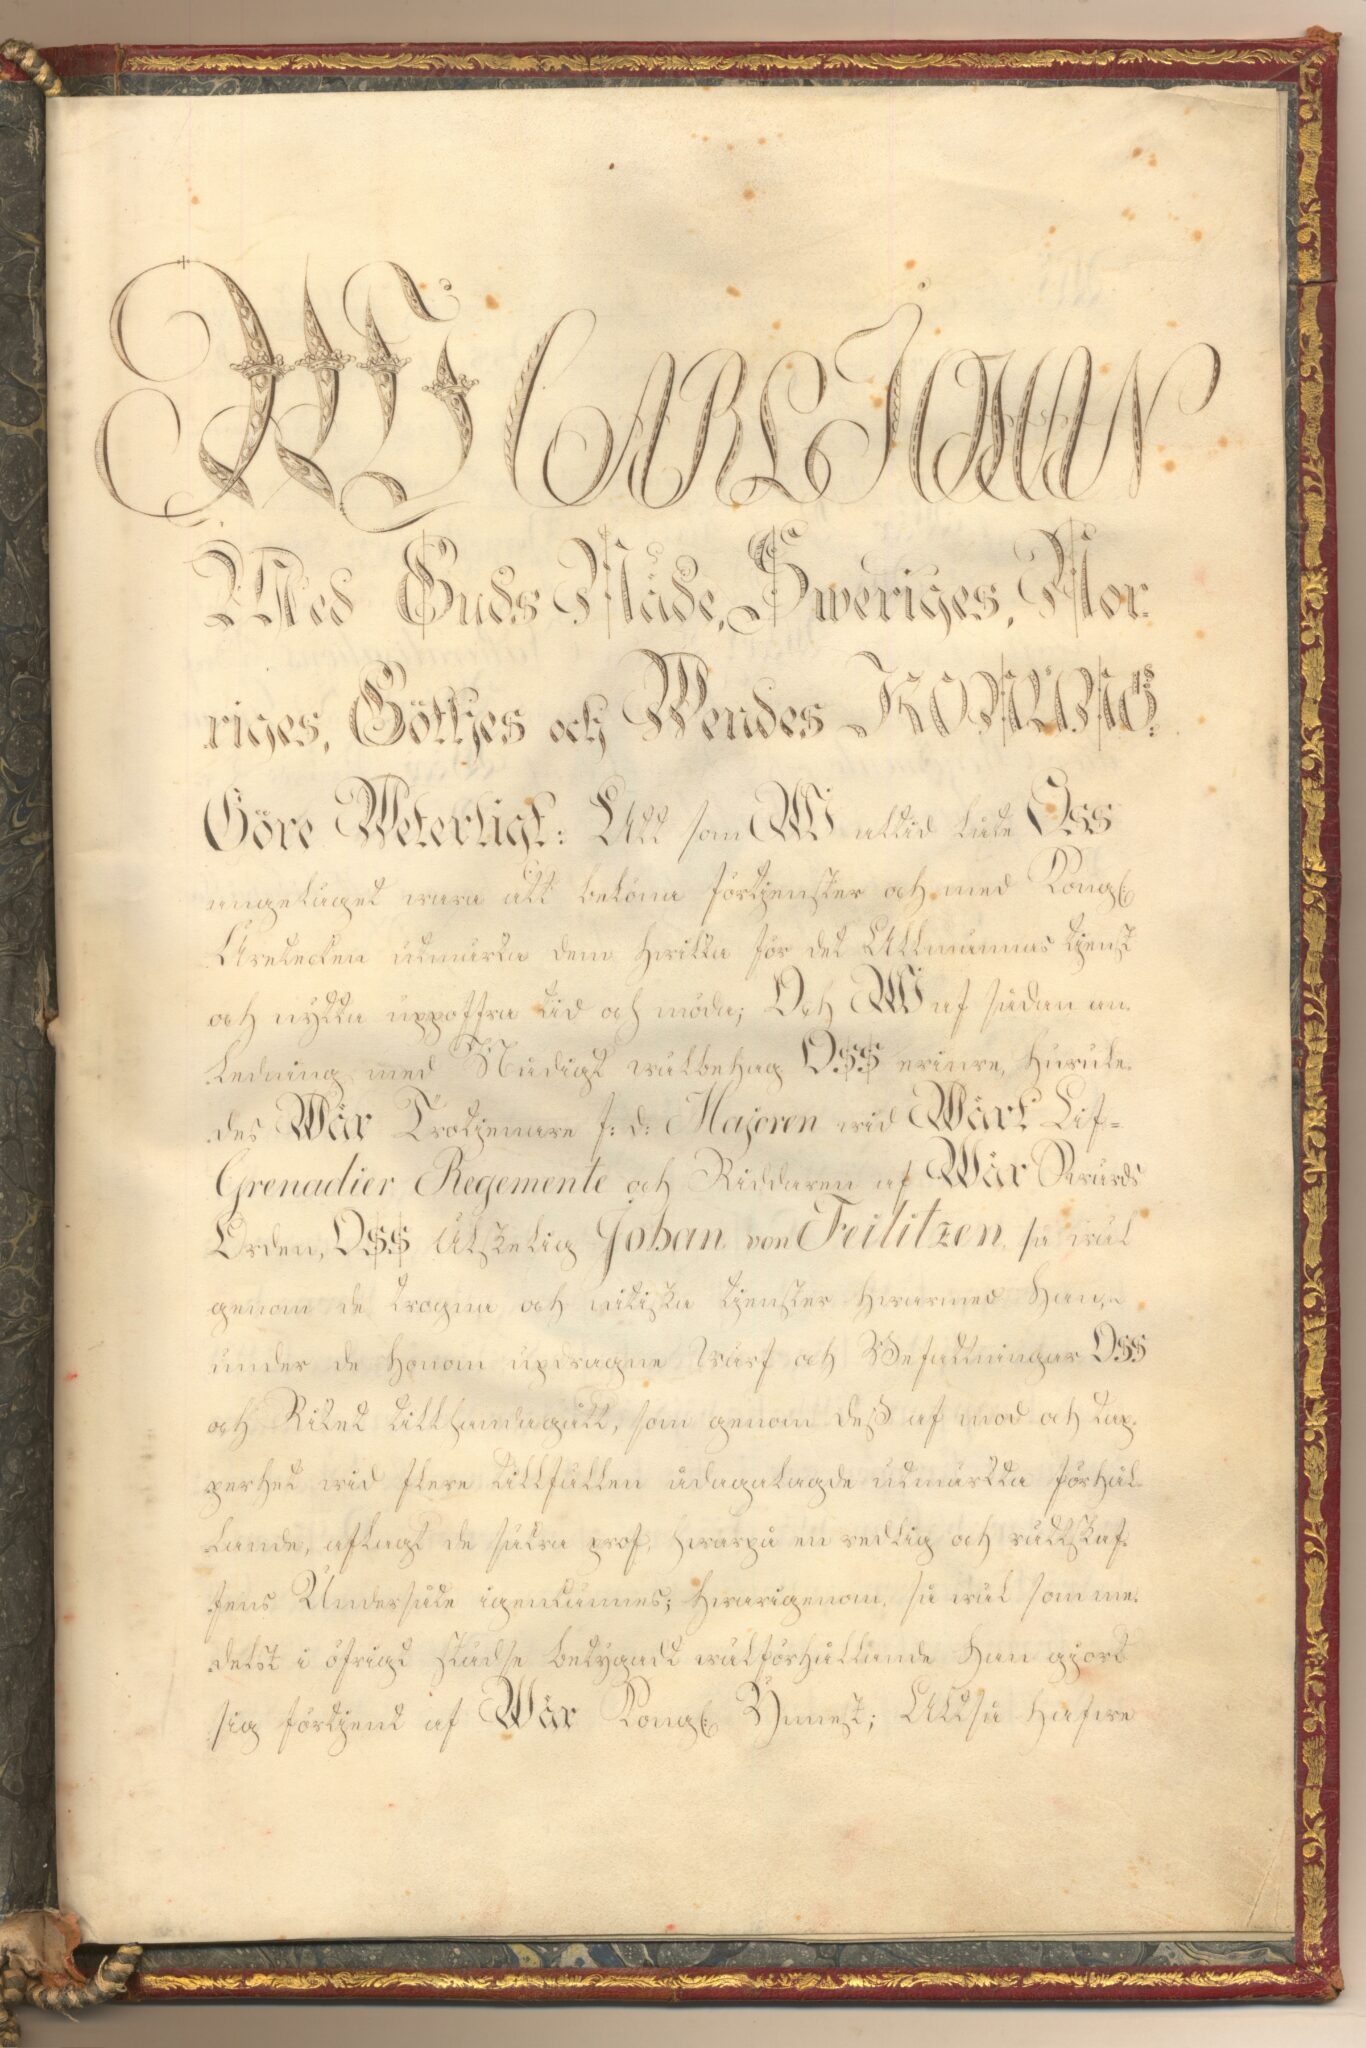 WI CARL JOHAN
Med Guds Nåde, Sweriges, Nor-
riges, Göthes och Wendes KONUNG:
Göre Weterligt: Att som WI alltid låte Oss
angeläget wara att belöna förtjenster och med Kongl:
Äretecken utmärka dem, hwilka för det Allmännas tjenst
och nytta uppoffra tid och möda; Och WI af sådan an-
ledning med Nådigt wälbehag OSS erinre, hurule-
des Wår Trotjenare f: d: Majoren wid Wårt Lif-
Grenadier Regemente och Riddaren af Wår Swärds
Orden, OSS Älskelig Johan von Feilitzen, så wäl
genom de trogna och nitiska tjenster hwarmed Han,
under de honom updragne wärf och Befattningar OSS
och Riket tillhandagått, som genom deß af mod och tap-
perhet wid flere tillfällen ådagalagde utmärkta förhål-
lande, aflagt de säkra prof, hwarpå en redlig och rättskaf-
fens Undersåte igenkännes; hwarigenom, så wäl som me-
delst i öfrigt städse betygadt wälförhållande Han gjort
sig förtjent af Wår Kongl: Ynnest; Altså hafwe